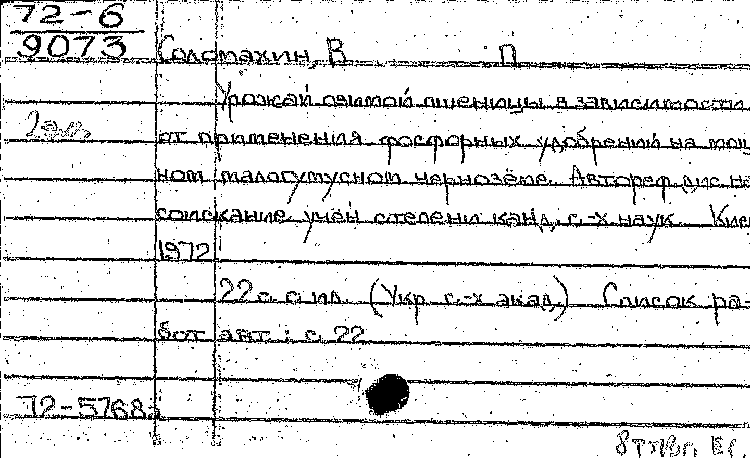 72-6
9073
Соломахин, В П
Урожай озимой пшеницы в зависимости
от применения фосфорных удобрений на мощ
ном малогумусном черноземе. Автореф дис на
соискание учен степени канд. с.-х наук. Киев
1972
22 с. с ил. (Укр с.-х акад.) Список ра-
бот авт.: с. 22
72-5768